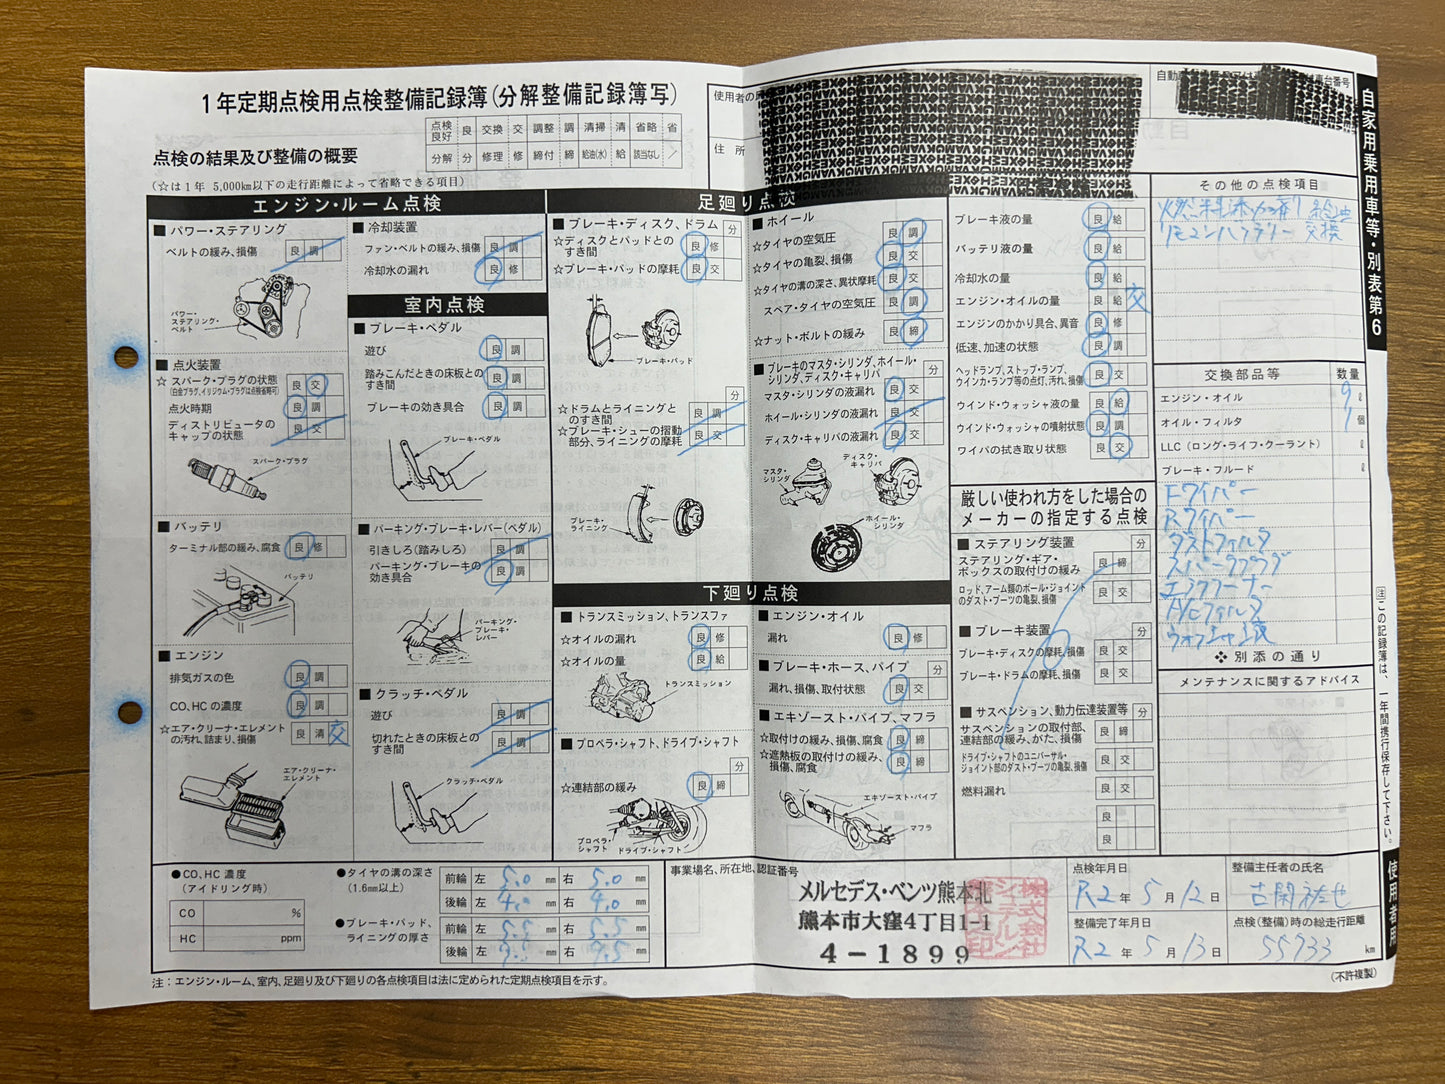 1年定期点検用点検整備記録簿(分解整備記録簿写)
点検の結果及び整備の概要
(☆は1年 5,000km以下の走行距離によって省略できる項目)
点検良好 良 交換 交 調整 調 清掃 清 省略 省
分解 分 修理 修 締付 締 給油(水) 給 該当なし /
使用者の
住 所
自家用乗用車等・別表第6
エンジン・ルーム点検
■ パワー・ステアリング
ベルトの緩み、損傷 良 調
パワー・ステアリング・ベルト
■ 点火装置
☆ スパーク・プラグの状態 良 交
(白金プラグ、イリジウム・プラグは点検省略可)
点火時期 良 調
ディストリビュータのキャップの状態 良 交
スパーク・プラグ
■ バッテリ
ターミナル部の緩み、腐食 良 修
バッテリ
■ エンジン
排気ガスの色 良 調
CO、HCの濃度 良 調
☆エア・クリーナ・エレメントの汚れ、詰まり、損傷 良 清 交
エア・クリーナ・エレメント
■ 冷却装置
ファン・ベルトの緩み、損傷 良 調
冷却水の漏れ 良 修
室内点検
■ ブレーキ・ペダル
遊び 良 調
踏みこんだときの床板とのすき間 良 調
ブレーキの効き具合 良 調
ブレーキ・ペダル
■ パーキング・ブレーキ・レバー(ペダル)
引きしろ(踏みしろ) 良 調
パーキング・ブレーキの効き具合 良 調
パーキング・ブレーキ・レバー
■ クラッチ・ペダル
遊び 良 調
切れたときの床板とのすき間 良 調
クラッチ・ペダル
足廻り点検
■ ブレーキ・ディスク、ドラム 分
☆ディスクとパッドとのすき間 良 修
☆ブレーキ・パッドの摩耗 良 交
ブレーキ・パッド
分
☆ドラムとライニングとのすき間 良 調
☆ブレーキ・シューの摺動部分、ライニングの摩耗 良 交
ブレーキ・ライニング
■ ホイール
☆タイヤの空気圧 良 調
☆タイヤの亀裂、損傷 良 交
☆タイヤの溝の深さ、異状摩耗 良 交
スペア・タイヤの空気圧 良 調
☆ナット・ボルトの緩み 良 締
■ ブレーキのマスタ・シリンダ、ホイール・シリンダ、ディスク・キャリパ 分
マスタ・シリンダの液漏れ 良 交
ホイール・シリンダの液漏れ 良 交
ディスク・キャリパの液漏れ 良 交
マスタ・シリンダ
ディスク・キャリパ
ホイール・シリンダ
下廻り点検
■ トランスミッション、トランスファ
☆オイルの漏れ 良 修
☆オイルの量 良 給
トランスミッション
■ プロペラ・シャフト、ドライブ・シャフト 分
☆連結部の緩み 良 締
プロペラ・シャフト
ドライブ・シャフト
■ エンジン・オイル
漏れ 良 修
■ ブレーキ・ホース、パイプ 分
漏れ、損傷、取付状態 良 交
■ エキゾースト・パイプ、マフラ
☆取付けの緩み、損傷、腐食 良 締
☆遮熱板の取付けの緩み、損傷、腐食 良 締
エキゾースト・パイプ
マフラ
ブレーキ液の量 良 給
バッテリ液の量 良 給
冷却水の量 良 給
エンジン・オイルの量 良 給 交
エンジンのかかり具合、異音 良 修
低速、加速の状態 良 調
ヘッドランプ、ストップ・ランプ、ウインカ・ランプ等の点灯、汚れ、損傷 良 交
ウインド・ウォッシャ液の量 良 給
ウインド・ウォッシャの噴射状態 良 調
ワイパの拭き取り状態 良 交
厳しい使われ方をした場合のメーカーの指定する点検
■ ステアリング装置 分
ステアリング・ギア・ボックスの取付けの緩み 良 締
ロッド、アーム類のボール・ジョイントのダスト・ブーツの亀裂、損傷 良 交
■ ブレーキ装置 分
ブレーキ・ディスクの摩耗、損傷 良 交
ブレーキ・ドラムの摩耗、損傷 良 交
■ サスペンション、動力伝達装置等 分
サスペンションの取付部、連結部の緩み、がた、損傷 良 締
ドライブ・シャフトのユニバーサル・ジョイント部のダスト・ブーツの亀裂、損傷 良 交
燃料漏れ 良 交
良
良
その他の点検項目
リモコンバッテリー 交換
交換部品等 数量
エンジン・オイル 9 ℓ
オイル・フィルタ 1 個
LLC (ロング・ライフ・クーラント) ℓ
ブレーキ・フルード ℓ
Fワイパー
Rワイパー
ダストフィルタ
スパークプラグ
エアクリーナー
A/Cフィルタ
❖ 別添の通り
メンテナンスに関するアドバイス
注この記録簿は、一年間携行保存して下さい。
使用者用
●CO、HC濃度(アイドリング時)
CO %
HC ppm
●タイヤの溝の深さ(1.6mm以上)
前輪 左 5.0 mm 右 5.0 mm
後輪 左 4.0 mm 右 4.0 mm
●ブレーキ・パッド、ライニングの厚さ
前輪 左 5.5 mm 右 5.5 mm
後輪 左 mm 右 mm
事業場名、所在地、認証番号
メルセデス・ベンツ熊本北
熊本市大窪4丁目1-1
4-1899
点検年月日
R2 年 5 月 12 日
整備完了年月日
R2 年 5 月 13 日
整備主任者の氏名
点検(整備)時の総走行距離
55933 km
注:エンジン・ルーム、室内、足廻り及び下廻りの各点検項目は法に定められた定期点検項目を示す。
(不許複製)